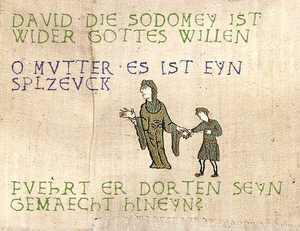 DAVID · DIE SODOMEY IST
WIDER GOTTES WILLEN
O MVTTER · ES IST EYN
SPLZEVCK
FVEHRT ER DORTEN SEYN
GEMAECHT HINEYN?